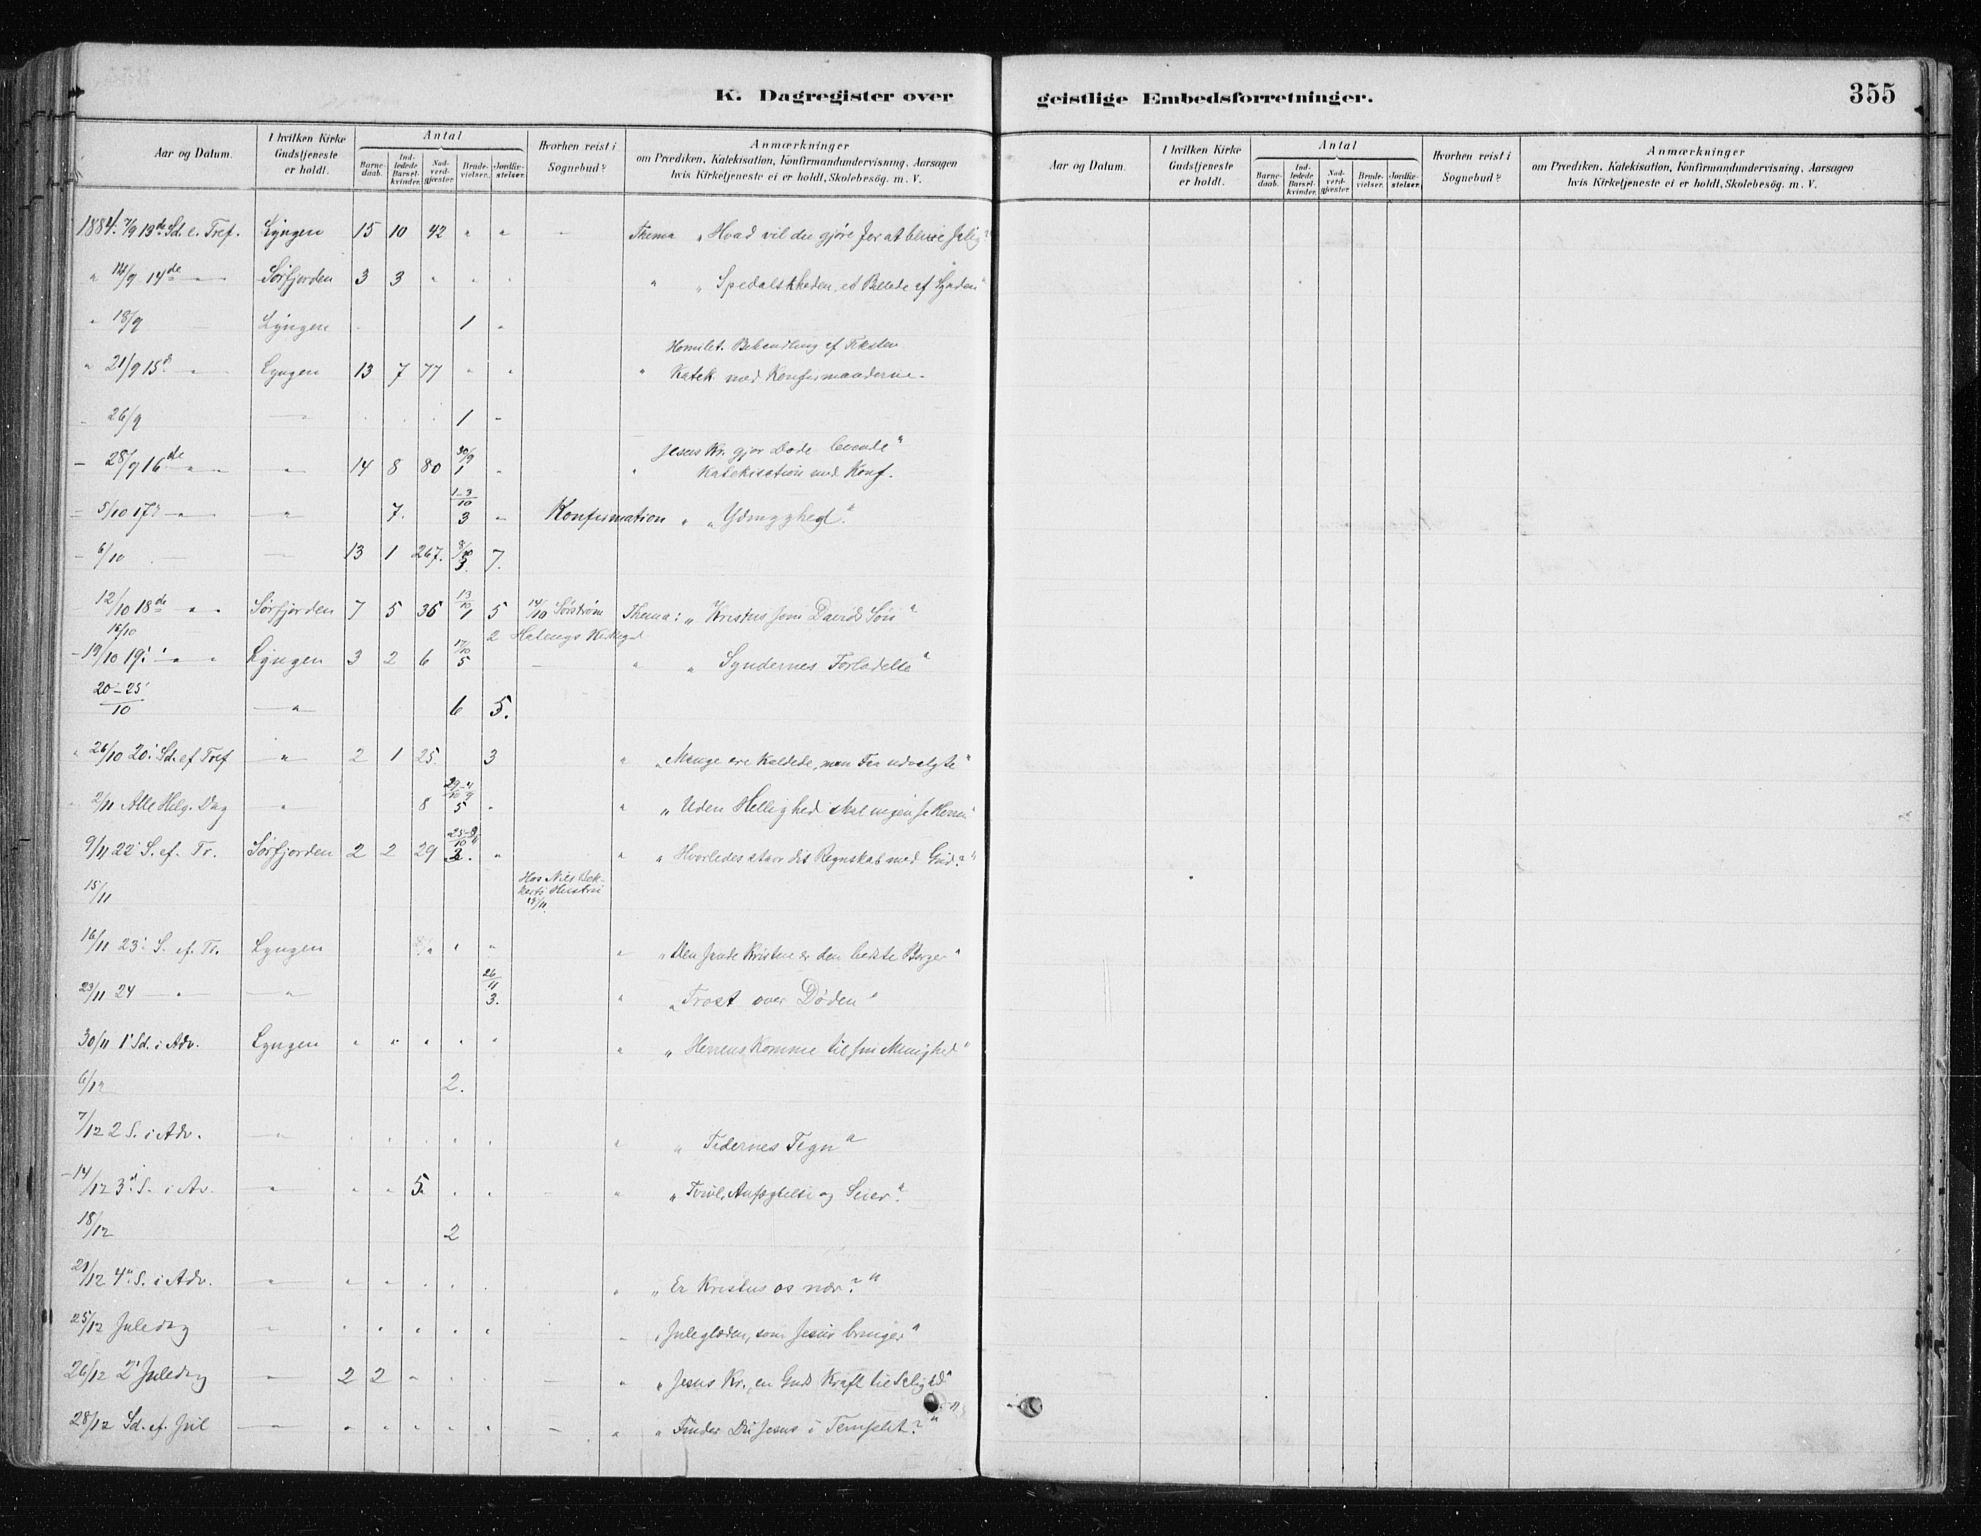 K. Dagregister over geistlige Embedsforretninger. 355
Aar og Datum. I hvilken Kirke Gudstjeneste er holdt. Antal Barnedaab. Indledede Barselkvinder. Nadverdgjester. Brudevielser. Jordfæstelser. Hvorhen reist i Sognebud? Anmærkninger om Prædiken, Katekisation, Konfirmandundervisning, Aarsagen hvis Kirketjeneste ei er holdt, Skolebesøg. m. V.
Aar og Datum. I hvilken Kirke Gudstjeneste er holdt. Antal Barnedaab. Indledede Barselkvinder. Nadverdgjester. Brudevielser. Jordfæstelser. Hvorhen reist i Sognebud? Anmærkninger om Prædiken, Katekisation, Konfirmandundervisning, Aarsagen hvis Kirketjeneste ei er holdt, Skolebesøg. m. V.
1884. 7/9 13de Sd. e. Tref. Lyngen 15 10 42 " " - Thema „Hvad vil du gjøre for at blive salig?"
" 14/9 14de - Sørfjorden 3 3 " " " " „Spedalskheden, et Billede af Synden"
" 18/9 Lyngen 1 "
Homilet. Behandling af Teksten
" 21/9 15d " Lyngen 13 7 77 " " " Katek. med Konfirmanderne.
- 26/9 - 1 -
Jesus Kr. gjør Døde levende"
- 28/9 16de " " " 14 8 80 30/9 1 " " Katekisation med Konf.
- 5/10 17d " " 7. 1-3/10 3 - Konfirmation " „Ydmyghed."
- 6/10 - - 13 1 267. 8/10 3. 7.
12/10 18de " " Sørfjorden 7 5 36 13/10 1 5 14/10 Sørstrøm Thema: „Kristus som Davids Søn"
16/10 2
- 19/10 19. " " Lyngen 3 2 6 17/10 5 - " „Syndernes Forladelse"
20-25/10 " 6 5.
" 26/10 20. Sd. ef Tref " 2 1 25. 3 " „Mange ere kaldede, men Faa udvalgte"
2/11 Alle Helg. Dag " 8 5 " " „Uden Hellighed skal ingen se Herren"
9/11 22. S. ef. Tr. Sørfjorden 2 2 29 3. " " „Hvorledes staar dit Regnskab med Gud?"
15/11 Hos Nils Hustru 15/11.
16/11 23. S. ef. Tr. Lyngen " " " " „Den sande Kristne er den bedste Borger"
23/11 24 " " 26/11 3. " „Trøst over Døden"
30/11 1. Sd. i Adv. Lyngen " " " " " " „Herrens Komme til sin Menighed"
6/12 2.
7/12 2 S. i Adv. " " " " " " " „Tidernes Tegn"
- 14/12 3d S. i Av. " " " 5. " " - " „Tvivl, Anfægtelse og Seier."
18/12 2
21/12 4. S. i Adv. " " " " " " " „Er Kristus os nær?"
25/12 Juledag " " " " " " - „Juleglæden, som Jesus bringer"
26/12 2. Juledag " 2 2 " " " - " „Jesus Kr., en Guds Kraft til Salighed"
28/12 Sd. ef. Jul - " " " " " - " „Finder Du Jesus i Templet?"